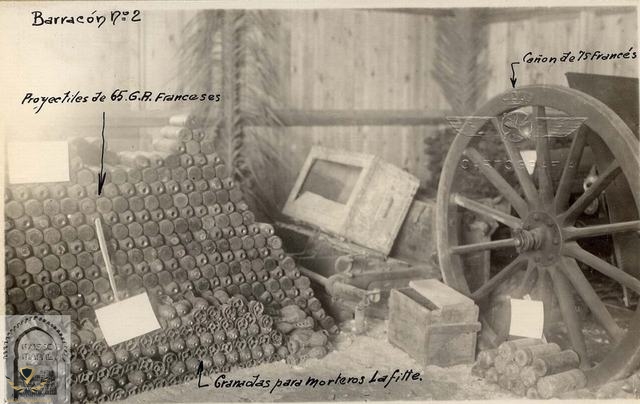 Barracón Nº 2
Cañon de 75 Francés
Proyectiles de 65.G.R. Franceses
Granadas para morteros Lafitte.